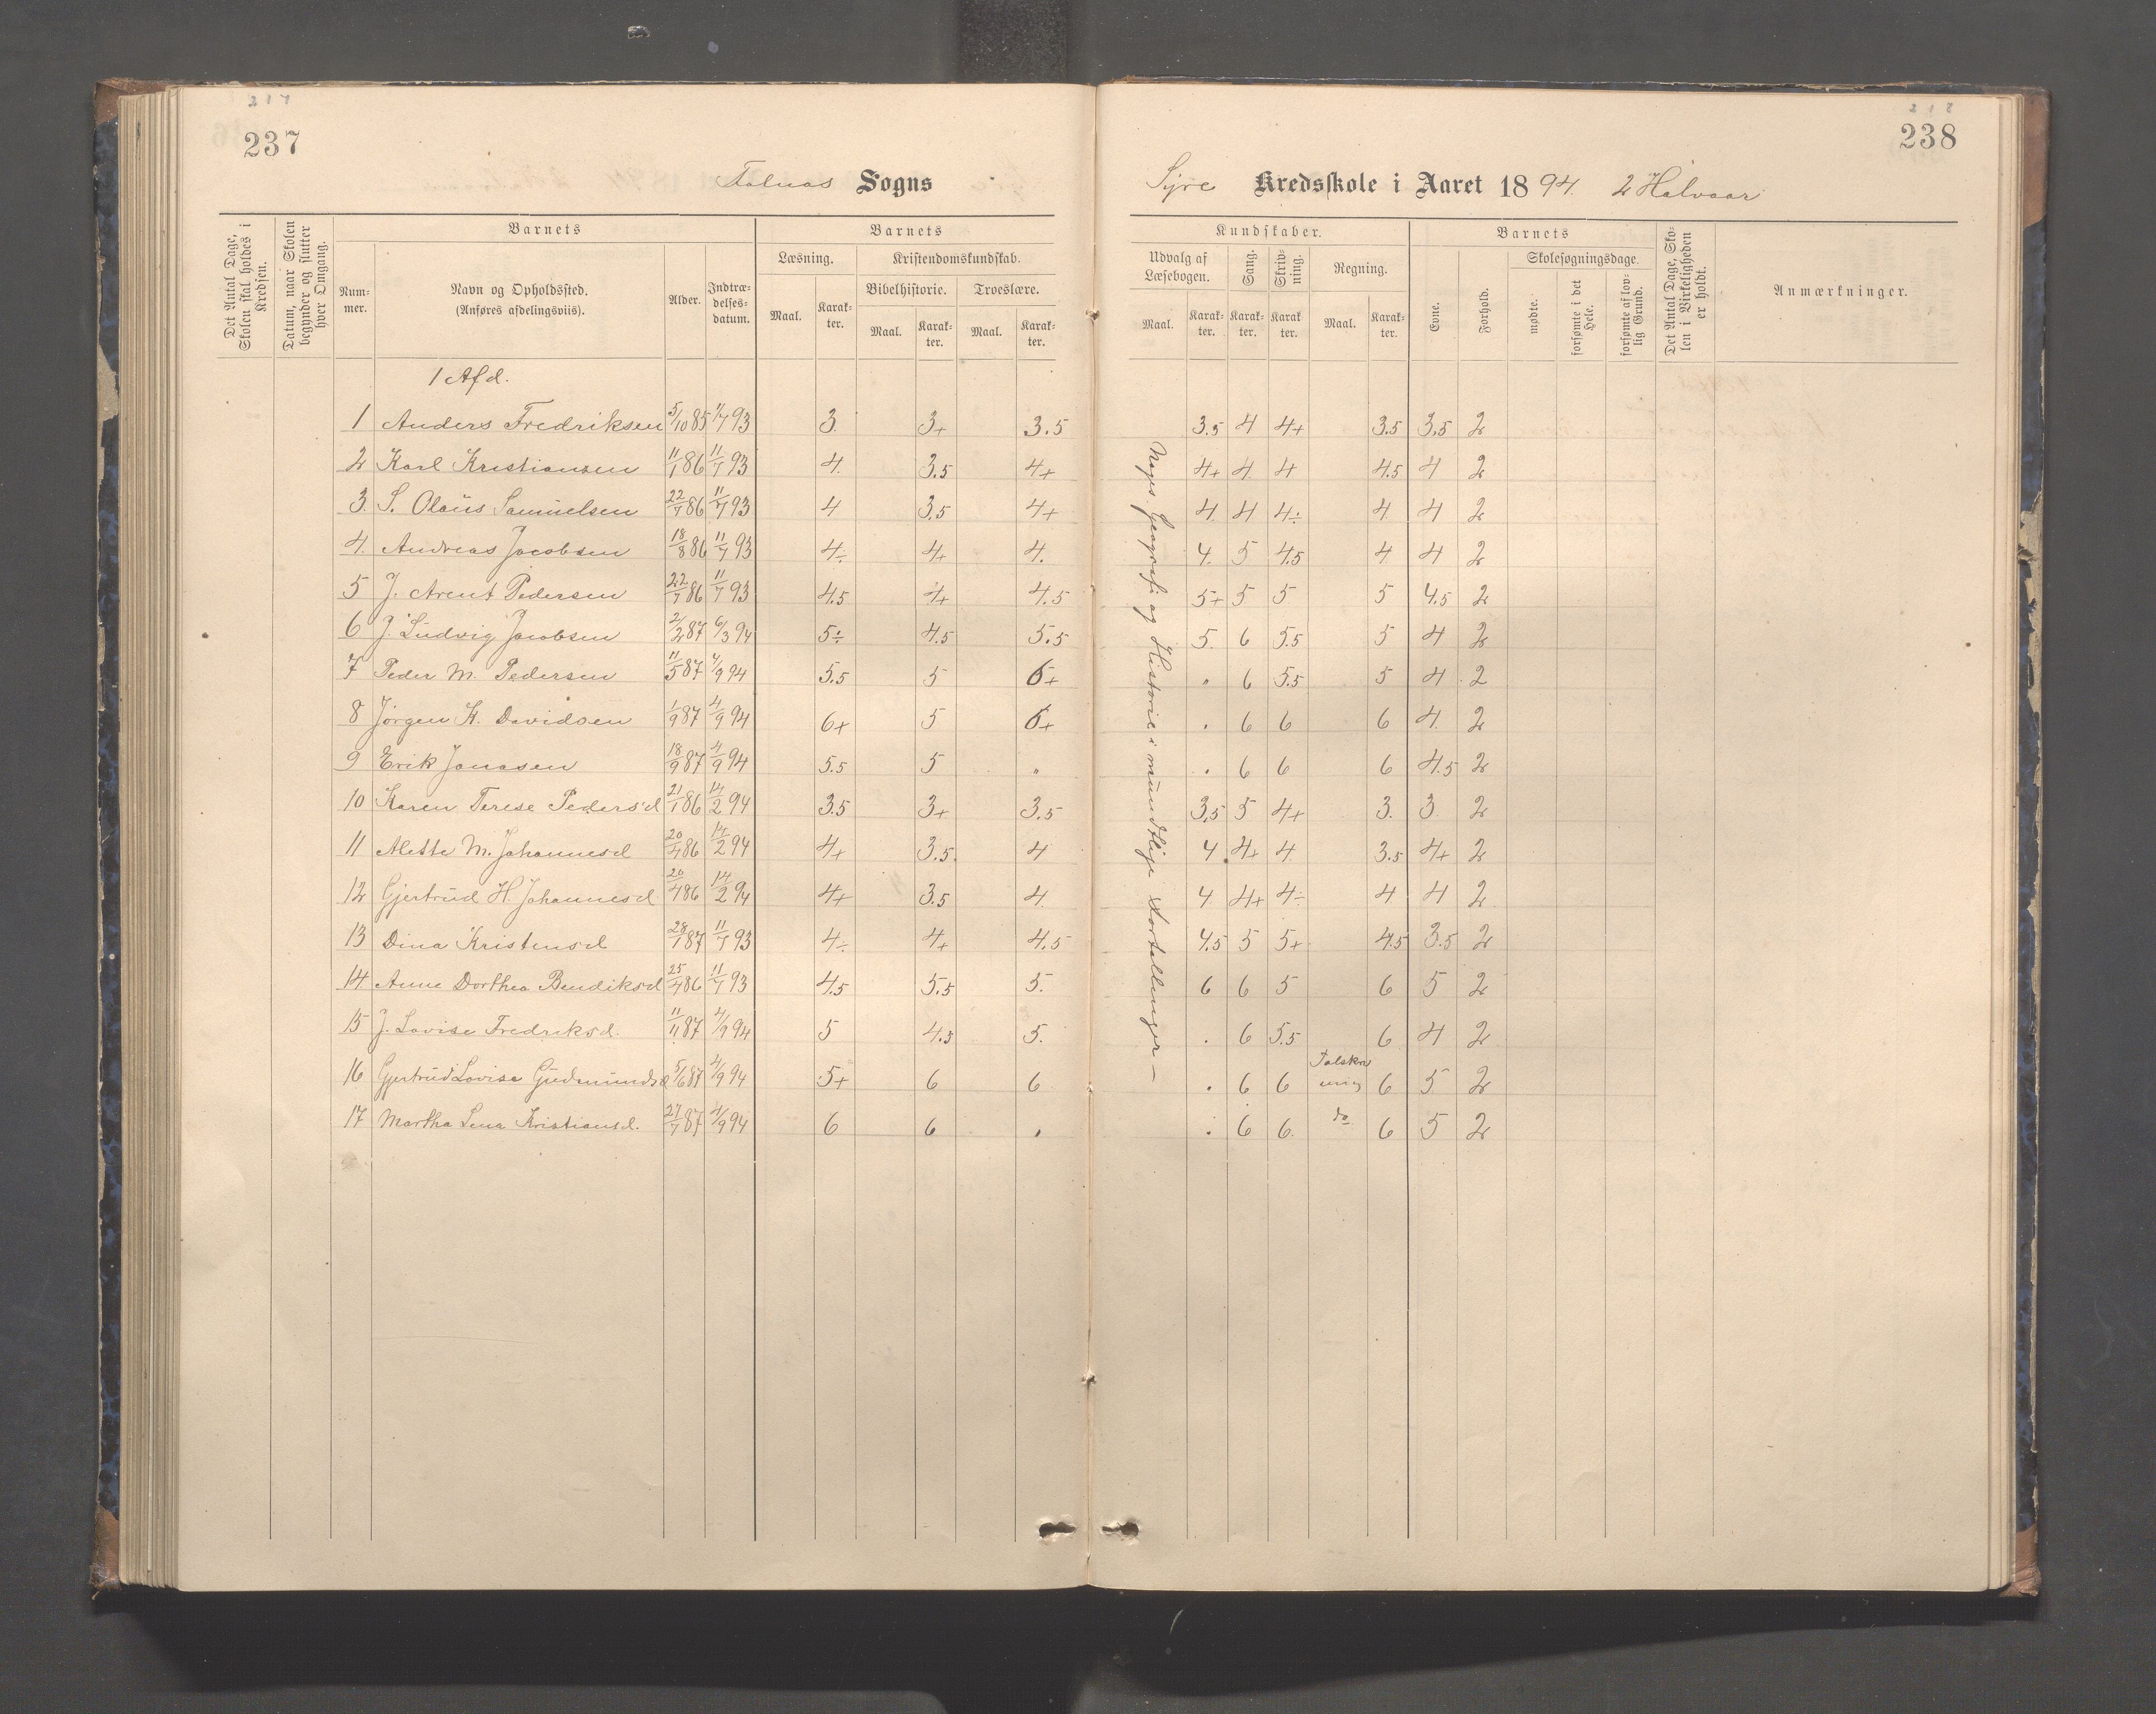 217
237
Falnæs Sogns
Det Antal Dage, Skolen skal holdes i Kredsen.
Datum, naar Skolen begynder og slutter hver Omgang.
Barnets
Nummer.
Navn og Opholdssted.
(Anføres afdelingsviis).
Alder.
Indtrædelsesdatum.
Barnets
Læsning.
Kristendomskundskab.
Bibelhistorie.
Troeslære.
Maal. Karakter. Maal. Karakter. Maal. Karakter.
1 Afd.
1 Anders Fredriksen 5/10 85 11/7 93 3. 3+ 3.5
2 Karl Kristiansen 11/1 86 11/7 93 4. 3.5 4+
3. S. Olaus Samuelsen 22/7 86 11/7 93 4 3.5 4+
4. Andreas Jacobsen 18/8 86 11/7 93 4÷ 4+ 4.
5 J. Arent Pedersen 22/7 86 11/7 93 4.5 4+ 4.5
6 J. Ludvig Jacobsen 2/2 87 6/3 94 5÷ 4.5 5.5
7 Peder M. Pedersen 11/5 87 4/9 94 5.5 5 6+
8 Jørgen K. Davidsen 1/9 87 4/9 94 6+ 5 6+
9 Erik Jonasen 18/9 87 4/9 94 5.5 5 "
10 Karen Terese Pedersd 21/1 86 14/2 94 3.5 3+ 3.5
11 Alette M. Johannesd 20/4 86 14/2 94 4+ 3.5. 4
12 Gjertrud H Johannesd 20/4 86 14/2 94 4+ 3.5 4
13 Dina Kristensd 28/1 87 11/7 93 4÷ 4+ 4.5
14 Anne Dorthea Bendiksd 25/4 86 11/7 93 4.5 5.5 5.
15 J. Lovise Fredriksd. 11/11 87 4/9 94 5 4.5 5.
16 Gjertrud Lovise Gudmundsd 5/6 87 4/9 94 5+ 6 6
17 Martha Lena Kristiansd. 27/7 87 4/9 94 6 6 .
218
238
Syre Kredsskole i Aaret 1894. 2 Halvaar
Kundskaber.
Udvalg af Læsebogen.
Sang.
Skrivning.
Regning.
Maal. Karakter. Karakter. Karakter. Maal. Karakter.
Barnets
Evne.
Forhold.
Skolesøgningsdage.
mødte.
forsømte i det Hele.
forsømte af lovlig Grund.
Det Antal Dage, Skolen i Virkeligheden er holdt.
Anmærkninger.
Geografi og Historie i mundtlige Fortellinger –
3.5 4 4+ 3.5 3.5 2
4+ 4. 4 4.5 4 2
4. 4 4÷ 4. 4 2
4. 5 4.5 4 4 2
5+ 5 5 5 4.5 2
5. 6 5.5 5 4 2
" 6 5.5 5 4. 2
. 6 6 6 4. 2
. 6 6 6 4.5 2
3,5 5 4+ 3. 3. 2
4 4+ 4. 3.5 4+ 2
4 4+ 4÷ 4 4 2
4.5 5 5+ 4.5 3.5 2
6 6 5 6 5 2
. 6 5.5 6 4 2
. 6 6 Talskrivning 6 5 2
. 6 6. do 6 5 2